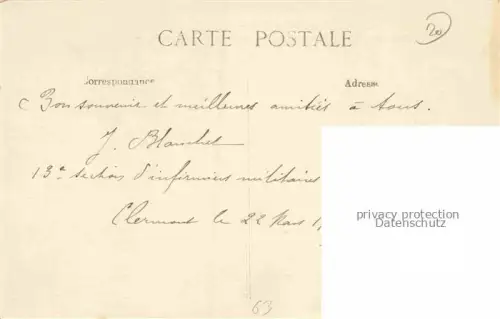 20
CARTE POSTALE
Correspondance
Adresse
Bon souvenir et meilleures amitiés à tous.
J. Blanchet
13e section d'infirmiers militaires
Clermont le 22 Mars 1
privacy protection
Datenschutz
63